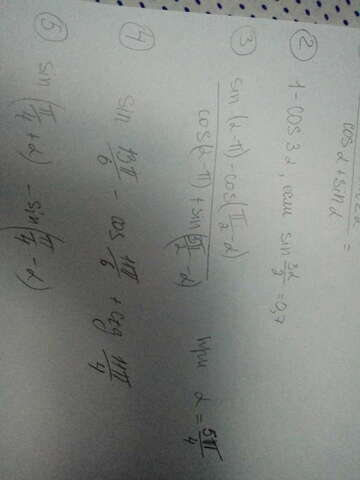 cos α + sin α =
② 1 - cos 3α, если sin 3α/2 = 0,7
③ sin (α-π) - cos(π/2 - α)
cos(α-π) + sin( - α) при α = 5π/4
④ sin 13π/6 - cos 11π/6 + ctg 11π/4
⑤ sin (π/4 + α) - sin (π/4 - α)